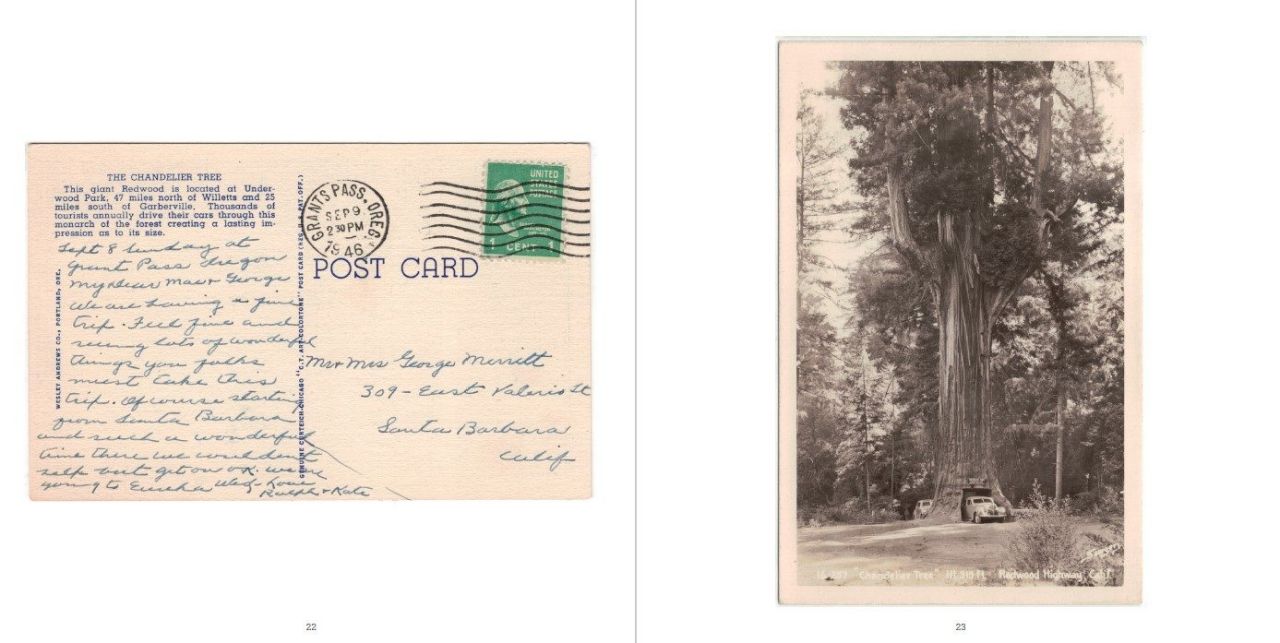 THE CHANDELIER TREE
This giant Redwood is located at Under-
wood Park, 47 miles north of Willetts and 25
miles south of Garberville. Thousands of
tourists annually drive their cars through this
monarch of the forest creating a lasting im-
pression as to its size.
Sept 8 Sunday at
Grant Pass Oregon
My Dear Mae & George
We are having a fine
trip. Feel fine and
seeing lots of wonderful
things you folks
must take this
trip. Of course starting
from Santa Barbara
and such a wonderful
time there we couldent
help but get on OK. we are
going to Eureka Wed- Love
Ralph & Kate
WESLEY ANDREWS CO., PORTLAND, ORE.
GENUINE CURTEICH-CHICAGO "C.T. ART-COLORTONE" POST CARD (REG. U.S. PAT. OFF.)
GRANTS PASS, OREG.
SEP 9
2 30 PM
1946
UNITED
STATES
POSTAGE
1 CENT 1
POST CARD
Mr & Mrs George Merritt
309 - East Valerio St
Santa Barbara
Calif
22
"Chandelier Tree" Ht. 315 Ft. Redwood Highway Calif.
23